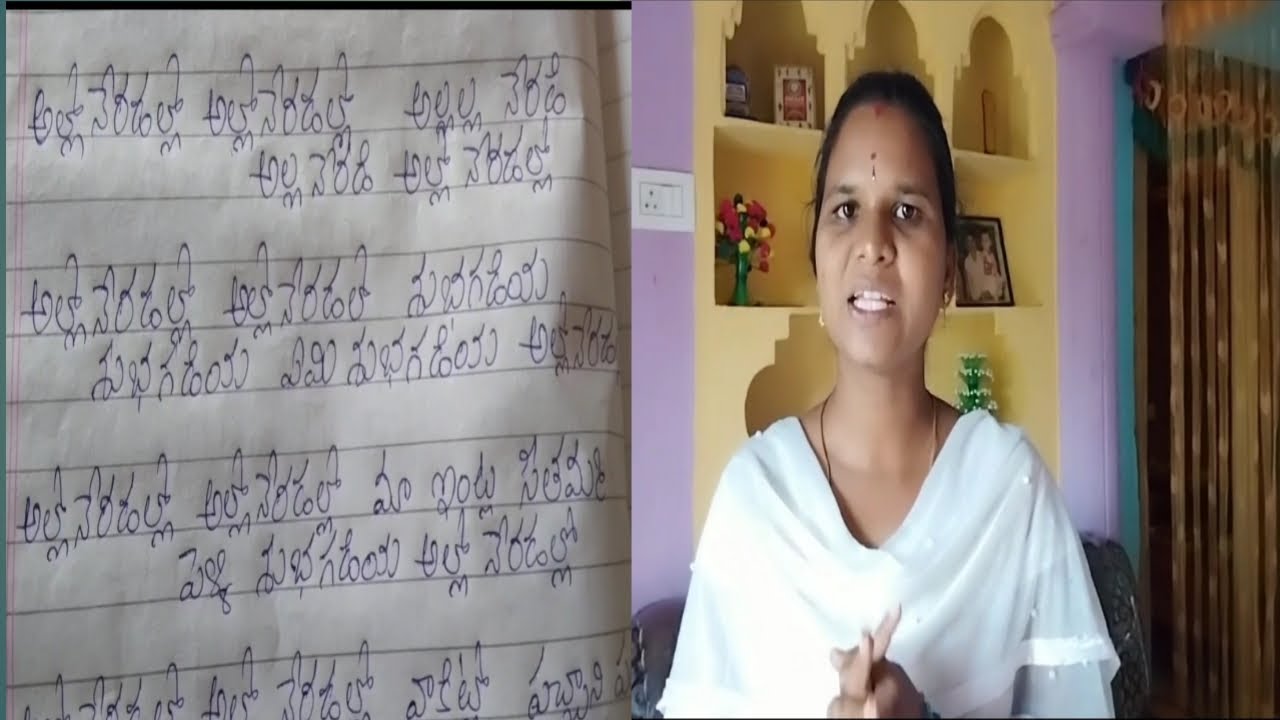 అల్లో నేరడల్లో అల్లో నేరడల్లో అల్లల్ల నేరడి
అల్ల నేరడి అల్లో నేరడల్లో
అల్లో నేరడల్లో అల్లో నేరడల్లో శుభగడియ
శుభగడియ ఏమి శుభగడియ అల్లో నేరడ
అల్లో నేరడల్లో అల్లో నేరడల్లో మా ఇంట్ల సీతమ్మ
పెళ్ళి శుభగడియ అల్లో నేరడల్లో
అల్లో నేరడల్లో అల్లో నేరడల్లో వాకిట్లో పచ్చాని